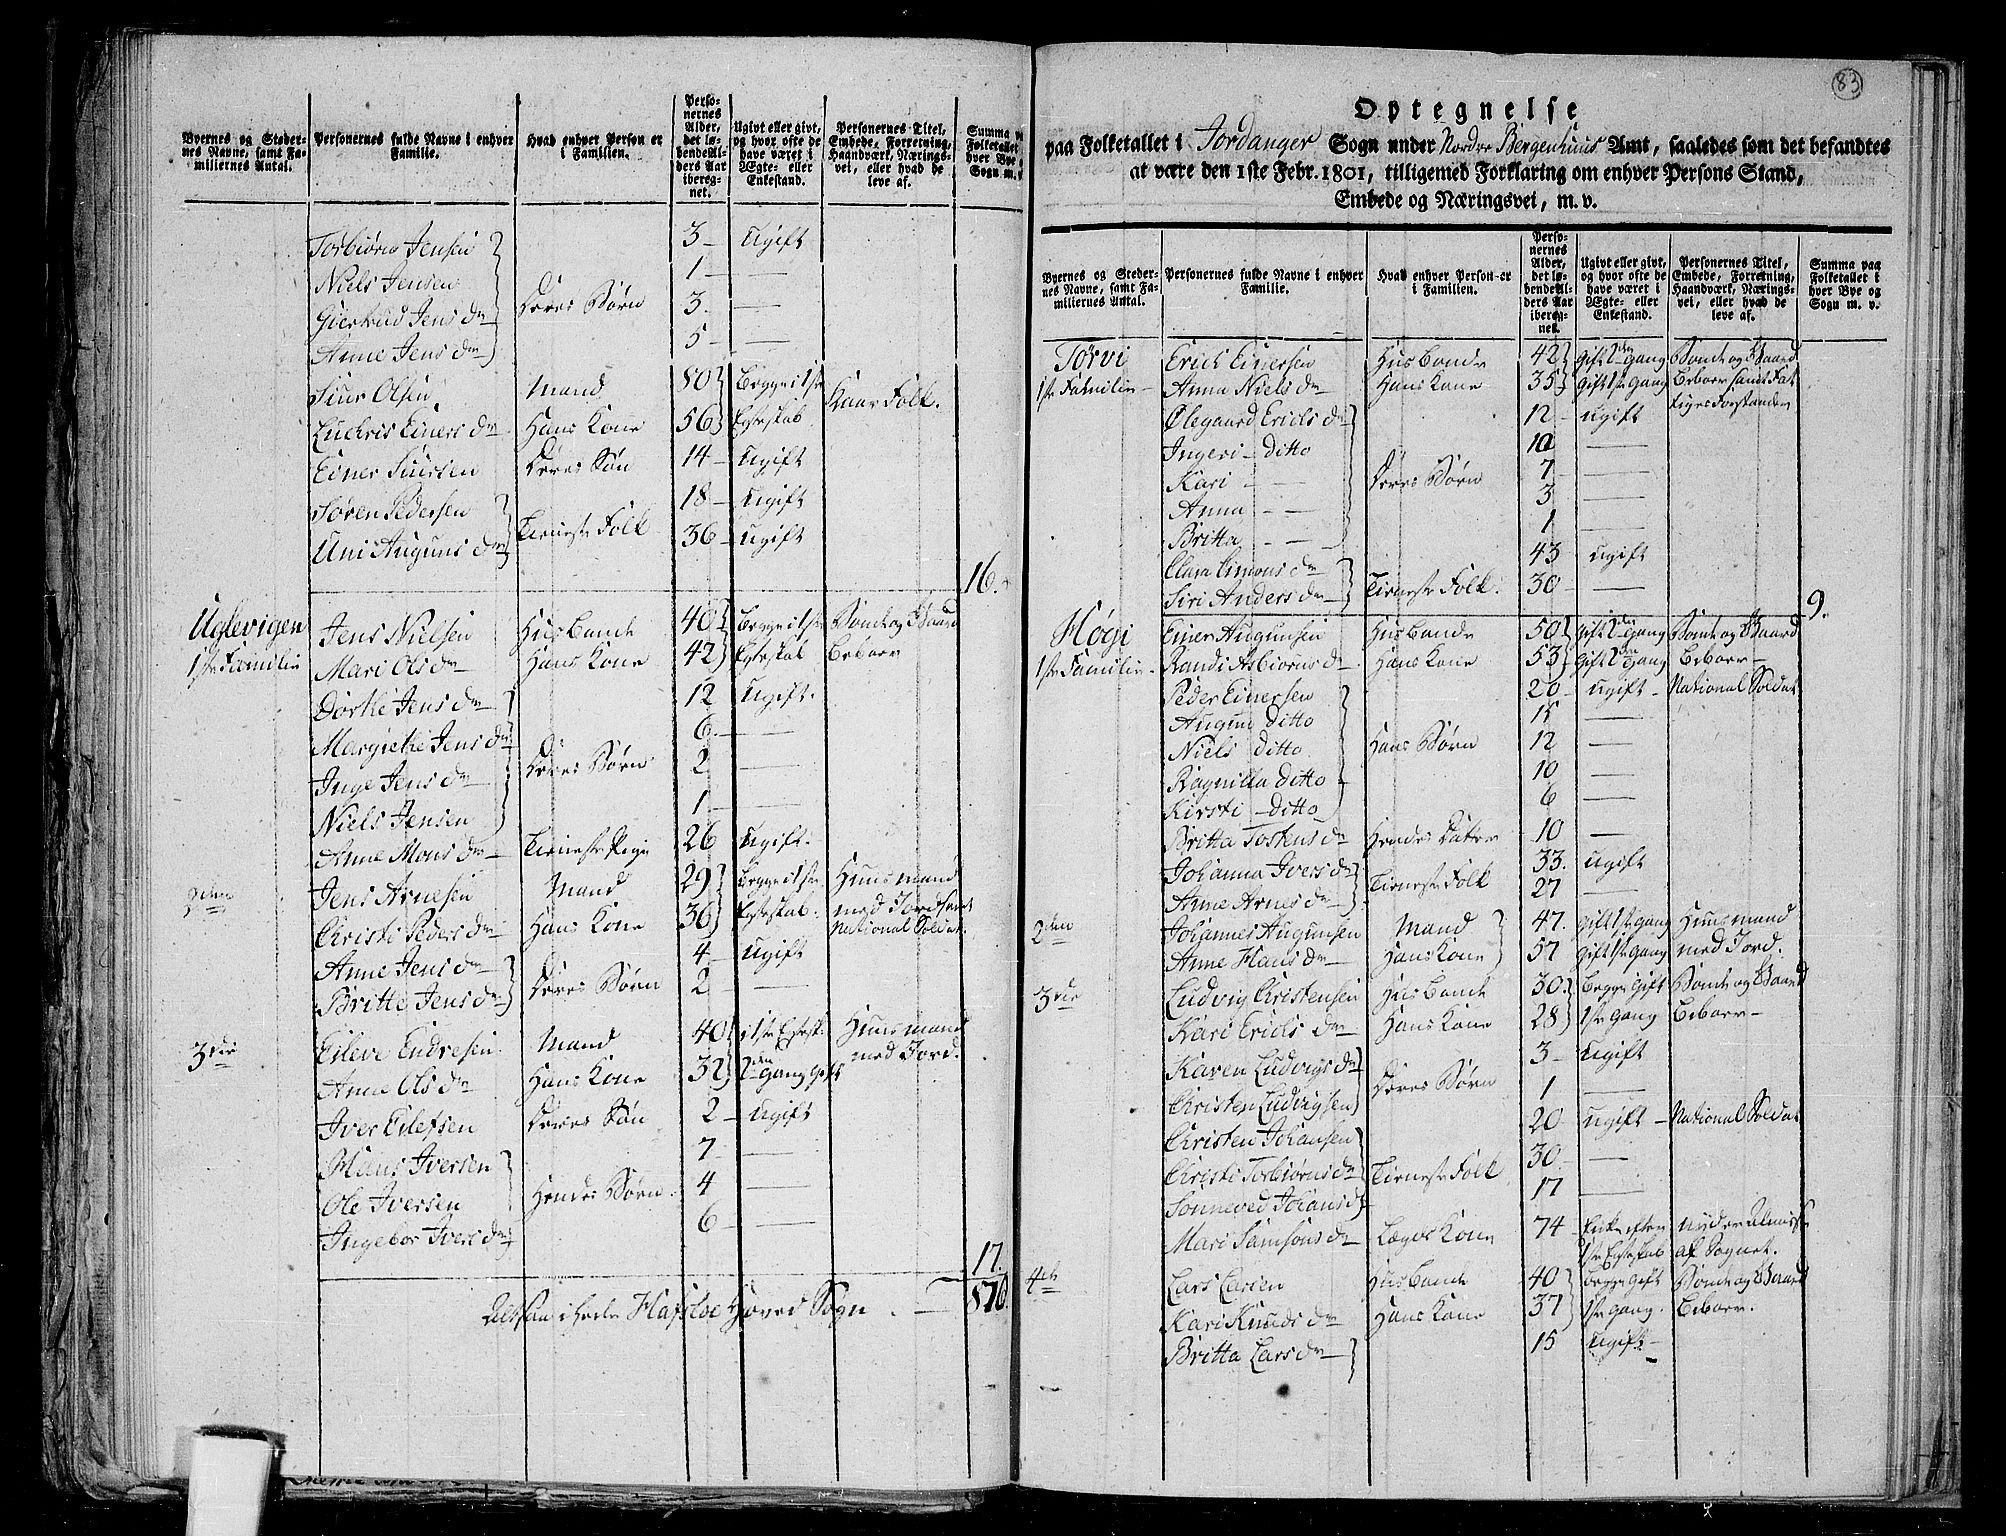 Byernes og Steder-
nes Navne, samt Fa-
miliernes Antal.
Personernes fulde Navne i enhver
Familie.
Hvad enhver Person er
i Familien.
Perso-
nernes
Alder,
det lø-
bende Al-
ders Aar
iberegnet.
Ugivt eller givt,
og hvor ofte de
have været i
Ægte- eller
Enkestand.
Personernes Titel,
Embede, Forretning,
Haandværk, Nærings-
vei, eller hvad de
leve af.
Summa
Folketallet
hver Bye
Sogn m.
Torbiørn Jensen 3 – Ugift
Niels Jensen 1 –
Giertrud Jens Dr Deres Børn 3.
Anne Jens Dr 5 –
Siur Olsen Mand 80 Begge i 1ste Kaar Folk.
Luckris Einers Dr Hans Kone 56 Egteskab
Einer Siursen Deres Søn 14 – Ugift
Søren Pedersen 18 – Ugift
Uni Auguns Dr Tieneste Folk 36 – Ugift
16.
Uglevigen Jens Nielsen Husbonde 40 Begge i 1ste Bonde og Gaard
1ste Familie Mari Ols Dr Hans Kone 42 Egteskab Beboer
Dorthe Jens Dr 12 Ugift.
Margrethe Jens Dr 6. –
Inge Jens Dr Deres Børn 2 –
Niels Jensen 1 –
Anne Mons Dr Tieneste Pige 26 Ugift.
2den Jens Arnesen Mand 29 Begge i 1ste Huusmand
Christi Peders Dr Hans Kone 36 Egteskab. med Jord samt
National Soldat.
Anne Jens Dr 4 – Ugift
Britte Jens Dr Deres Børn 2 –
3die Eileve Endresen Mand 40 1ste Egtesk. Huusmand
Anne Ols Dr Hans Kone 32 2den Gang Gift med Jord.
Iver Eilefsen Deres Søn 2 – Ugift
Hans Iversen 7 –
Ole Iversen Hendes Børn. 4
Ingebor Ivers Dr 6 –
17.
Altsaa i heele Hafsloe Hoved Sogn. – 876.
83
Optegnelse
paa Folketallet i Jordanger Sogn under Nordre Bergenhuus Amt, saaledes som det befandtes
at være den 1ste Febr. 1801, tilligemed Forklaring om enhver Persons Stand,
Embede og Næringsvei, m. v.
Byernes og Steder-
nes Navne, samt Fa-
miliernes Antal.
Personernes fulde Navne i enhver
Familie.
Hvad enhver Person er
i Familien.
Perso-
nernes
Alder,
det lø-
bende Al-
ders Aar
iberegnet.
Ugivt eller givt,
og hvor ofte de
have været i
Ægte- eller
Enkestand.
Personernes Titel,
Embede, Forretning,
Haandværk, Nærings-
vei, eller hvad de
leve af.
Summa paa
Folketallet i
hver Bye og
Sogn m. v.
Torvi Erich Einersen Husbonde 42 Gift 2den Gang Bonde og Gaard
1ste Familie – Anna Niels Dr Hans Kone 35 Gift 1ste Gang Beboer samt Fat
tiges Forstander
Ølegaard Erichs Dr 12 – Ugift
Ingeri – Ditto 10 –
Kari – – Deres Børn 7 –
Anna – – 3 –
Britta – – 1 –
Clara Simons Dr 43 Ugift
Siri Anders Dr Tieneste Folk. 30 –
9.
Høgi Einer Augunsen Husbonde 50 Gift 2den Gang Bonde og Gaard
1ste Familie – Randi Asbiørns Dr Hans Kone 53 Gift 2den Gang Beboer –
Peder Einersen 20 – Ugift – National Soldat
Augun Ditto 15 –
Niels Ditto Hans Børn 12 –
Ragnilla Ditto 10 –
Kirsti – Ditto 6 –
Britta Tostens Dr Hendes Datter 10 –
Johanna Ivers Dr 33. Ugift
Anne Arnes Dr Tieneste Folk 27 –
2den Johannes Augunsen Mand 47. Gift 1ste Gang Huusmand
Anne Hans Dr Hans Kone 57 Gift 1ste Gang med Jord.
3die Ludvig Christensen Husbonde 30. Begge Gift Bonde og Gaard
Kari Erichs Dr Hans Kone 28 1ste Gang Beboer –
Karen Ludvigs Dr 3 – Ugift
Christen Ludvigsen Deres Børn 1 –
Christen Johansen 20 Ugift – National Soldat
Christi Torbiørns Dr Tieneste Folk 30. –
Sonneved Johans D 17 –
Mari Samsons Dr Lægds Kone 74 Enke efter nyder Almisse
1ste Egteskab af Sognet.
4de Lars Larsen Husbonde 40 Begge Gift Bonde og Gaard
Kari Knuds Dr Hans Kone 37 1ste Gang. Beboer.
Britta Lars Dr 15 Ugift –